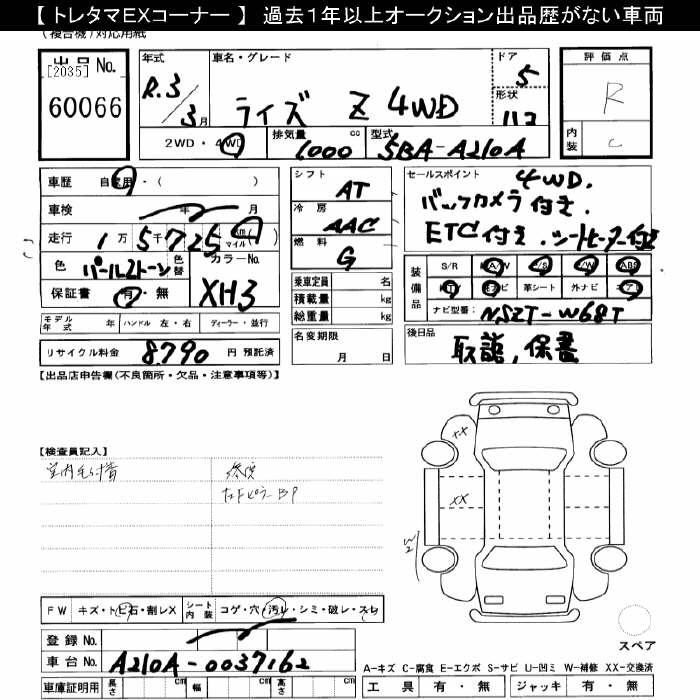 【 トレタマEXコーナー 】 過去1年以上オークション出品歴がない車両
(複合機)対応用紙
出品 No.
[2035]
60066
年式
R.3
3月
車名・グレード
ライズ Z 4WD
ドア
5
形状
ハコ
2WD・4WD
排気量
1000 cc
型式
5BA-A210A
評価点
R
内装
C
車歴 自家用・( )
車検 年 月
走行 1万5千725 km マイル
色 パール2トーン
色替
カラーNo.
XH3
保証書 有・無
モデル年式 年 ハンドル 左・右 ディーラー・並行
リサイクル料金 8790 円 預託済
シフト AT
冷房 AAC
燃料 G
乗車定員 名
積載量 kg
総重量 kg
名変期限
月 日
セールスポイント 4WD.
バックカメラ付き
ETC付き.シートヒーター付き
装備品
S/R A/W P/S P/W ABS
革シート 外ナビ
ナビ型番: NSZT-W68T
後日品
取説,保書
【出品店申告欄(不良箇所・欠品・注意事項等)】
【検査員記入】
FW キズ・トビ石・割レX シート内装 コゲ・穴・汚レ・シミ・破レ・スレ
登録 No.
車台 No. A210A-0037162
車庫証明用 長さ cm 幅 cm 高さ cm
XX
XX
W2
スペア
A-キズ C-腐食 E-エクボ S-サビ U-凹ミ W-補修 XX-交換済
工具 有・無 ジャッキ 有・無